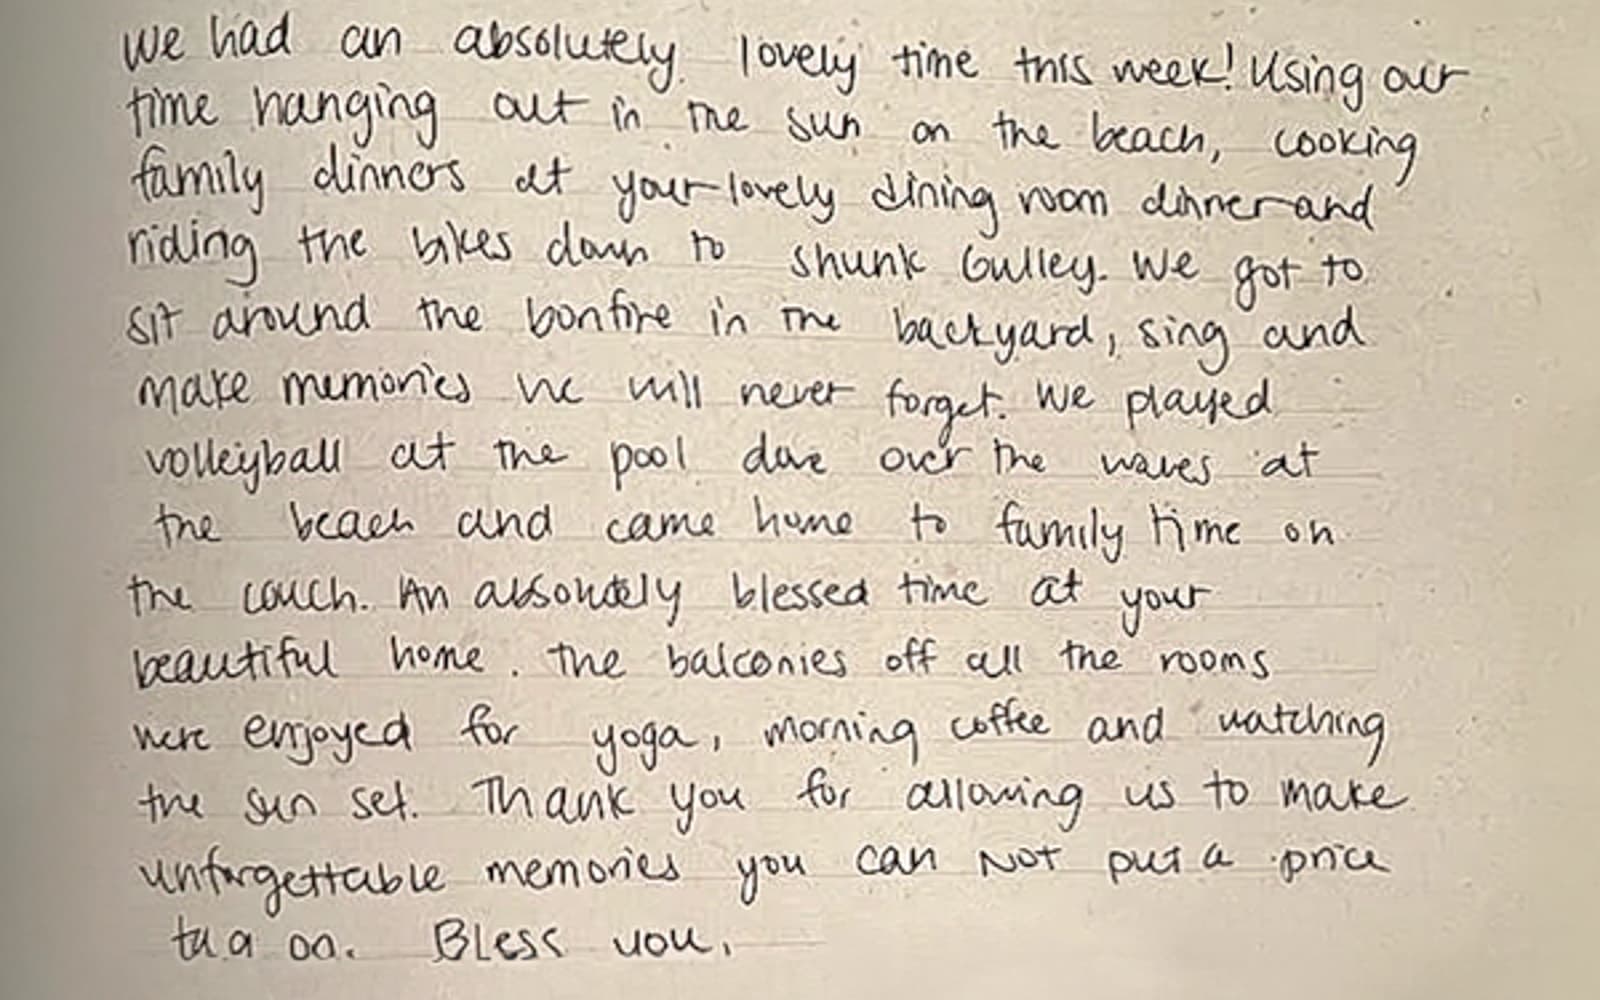 We had an absolutely lovely time this week! Using our
time hanging out in the sun on the beach, cooking
family dinners at your lovely dining room dinner and
riding the bikes down to Shunk Gulley. We got to
sit around the bonfire in the backyard, sing and
make memories we will never forget. We played
volleyball at the pool dove over the waves at
the beach and came home to family time on
the couch. An absolutely blessed time at your
beautiful home. The balconies off all the rooms
were enjoyed for yoga, morning coffee and watching
the sun set. Thank you for allowing us to make
unforgettable memories you can NOT put a price
tag on. Bless you.